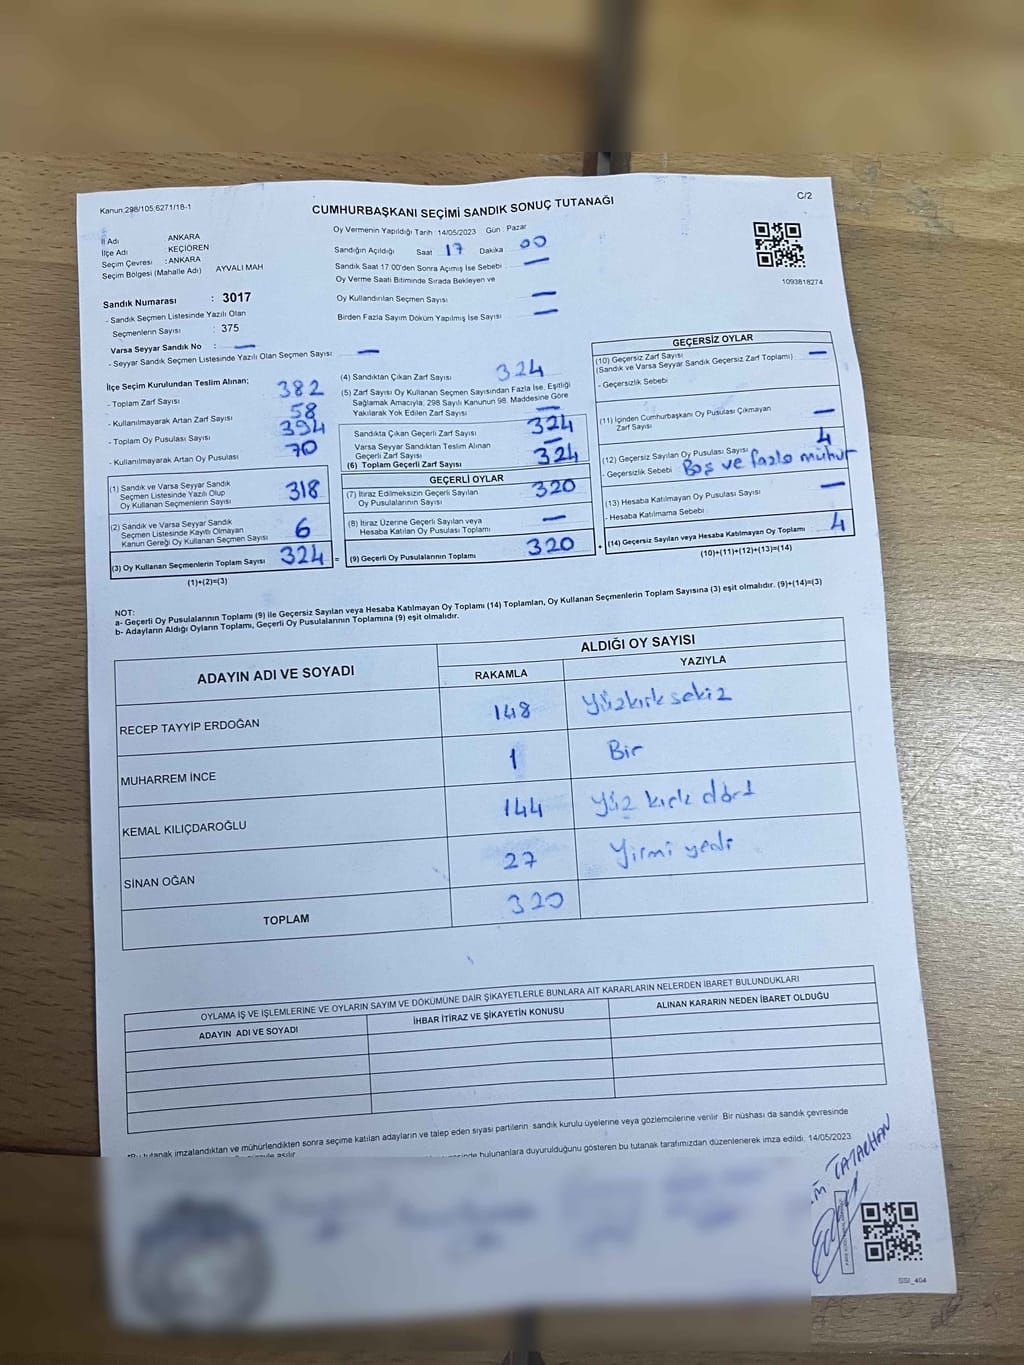 Kanun:298/105;6271/18-1
CUMHURBAŞKANI SEÇİMİ SANDIK SONUÇ TUTANAĞI
C/2
İl Adı : ANKARA
İlçe Adı : KEÇİÖREN
Seçim Çevresi : ANKARA
Seçim Bölgesi (Mahalle Adı) AYVALI MAH
Sandık Numarası : 3017
- Sandık Seçmen Listesinde Yazılı Olan
Seçmenlerin Sayısı : 375
Varsa Seyyar Sandık No : —
- Seyyar Sandık Seçmen Listesinde Yazılı Olan Seçmen Sayısı: —
Oy Vermenin Yapıldığı Tarih :14/05/2023 Gün : Pazar
Sandığın Açıldığı Saat 17 Dakika 00
Sandık Saat 17:00'den Sonra Açımış İse Sebebi —
Oy Verme Saati Bitiminde Sırada Bekleyen ve
Oy Kullandırılan Seçmen Sayısı —
Birden Fazla Sayım Döküm Yapılmış İse Sayısı —
1093818274
İlçe Seçim Kurulundan Teslim Alınan;
- Toplam Zarf Sayısı 382
- Kullanılmayarak Artan Zarf Sayısı 58
- Toplam Oy Pusulası Sayısı 394
- Kullanılmayarak Artan Oy Pusulası 70
(1) Sandık ve Varsa Seyyar Sandık
Seçmen Listesinde Yazılı Olup
Oy Kullanan Seçmenlerin Sayısı 318
(2) Sandık ve Varsa Seyyar Sandık
Seçmen Listesinde Kayıtlı Olmayan
Kanun Gereği Oy Kullanan Seçmen Sayısı 6
(3) Oy Kullanan Seçmenlerin Toplam Sayısı 324 =
(1)+(2)=(3)
(4) Sandıktan Çıkan Zarf Sayısı 324
(5) Zarf Sayısı Oy Kullanan Seçmen Sayısından Fazla İse, Eşitliği
Sağlamak Amacıyla; 298 Sayılı Kanunun 98. Maddesine Göre
Yakılarak Yok Edilen Zarf Sayısı —
Sandıkta Çıkan Geçerli Zarf Sayısı 324
Varsa Seyyar Sandıktan Teslim Alınan
Geçerli Zarf Sayısı —
(6) Toplam Geçerli Zarf Sayısı 324
GEÇERLİ OYLAR
(7) İtiraz Edilmeksizin Geçerli Sayılan
Oy Pusulalarının Sayısı 320
(8) İtiraz Üzerine Geçerli Sayılan veya
Hesaba Katılan Oy Pusulası Toplamı —
(9) Geçerli Oy Pusulalarının Toplamı 320 +
GEÇERSİZ OYLAR
(10) Geçersiz Zarf Sayısı
(Sandık ve Varsa Seyyar Sandık Geçersiz Zarf Toplamı) —
- Geçersizlik Sebebi
(11) İçinden Cumhurbaşkanı Oy Pusulası Çıkmayan
Zarf Sayısı —
(12) Geçersiz Sayılan Oy Pusulası Sayısı 4
- Geçersizlik Sebebi Boş ve fazla mühür
(13) Hesaba Katılmayan Oy Pusulası Sayısı —
- Hesaba Katılmama Sebebi
(14) Geçersiz Sayılan veya Hesaba Katılmayan Oy Toplamı 4
(10)+(11)+(12)+(13)=(14)
NOT:
a- Geçerli Oy Pusulalarının Toplamı (9) ile Geçersiz Sayılan veya Hesaba Katılmayan Oy Toplamı (14) Toplamları, Oy Kullanan Seçmenlerin Toplam Sayısına (3) eşit olmalıdır. (9)+(14)=(3)
b- Adayların Aldığı Oyların Toplamı, Geçerli Oy Pusulalarının Toplamına (9) eşit olmalıdır.
ADAYIN ADI VE SOYADI
ALDIĞI OY SAYISI
RAKAMLA YAZIYLA
RECEP TAYYİP ERDOĞAN 148 Yüzkırk sekiz
MUHARREM İNCE 1 Bir
KEMAL KILIÇDAROĞLU 144 Yüz kırk dört
SİNAN OĞAN 27 Yirmi yedi
TOPLAM 320
OYLAMA İŞ VE İŞLEMLERİNE VE OYLARIN SAYIM VE DÖKÜMÜNE DAİR ŞİKAYETLERLE BUNLARA AİT KARARLARIN NELERDEN İBARET BULUNDUKLARI
ADAYIN ADI VE SOYADI İHBAR İTİRAZ VE ŞİKAYETİN KONUSU ALINAN KARARIN NEDEN İBARET OLDUĞU
*Bu tutanak imzalandıktan ve mühürlendikten sonra seçime katılan adayların ve talep eden siyasi partilerin sandık kurulu üyelerine veya gözlemcilerine verilir. Bir nüshası da sandık çevresinde
bulunanlara duyurulduğunu gösteren bu tutanak tarafımızdan düzenlenerek imza edildi. 14/05/2023
SSI_404